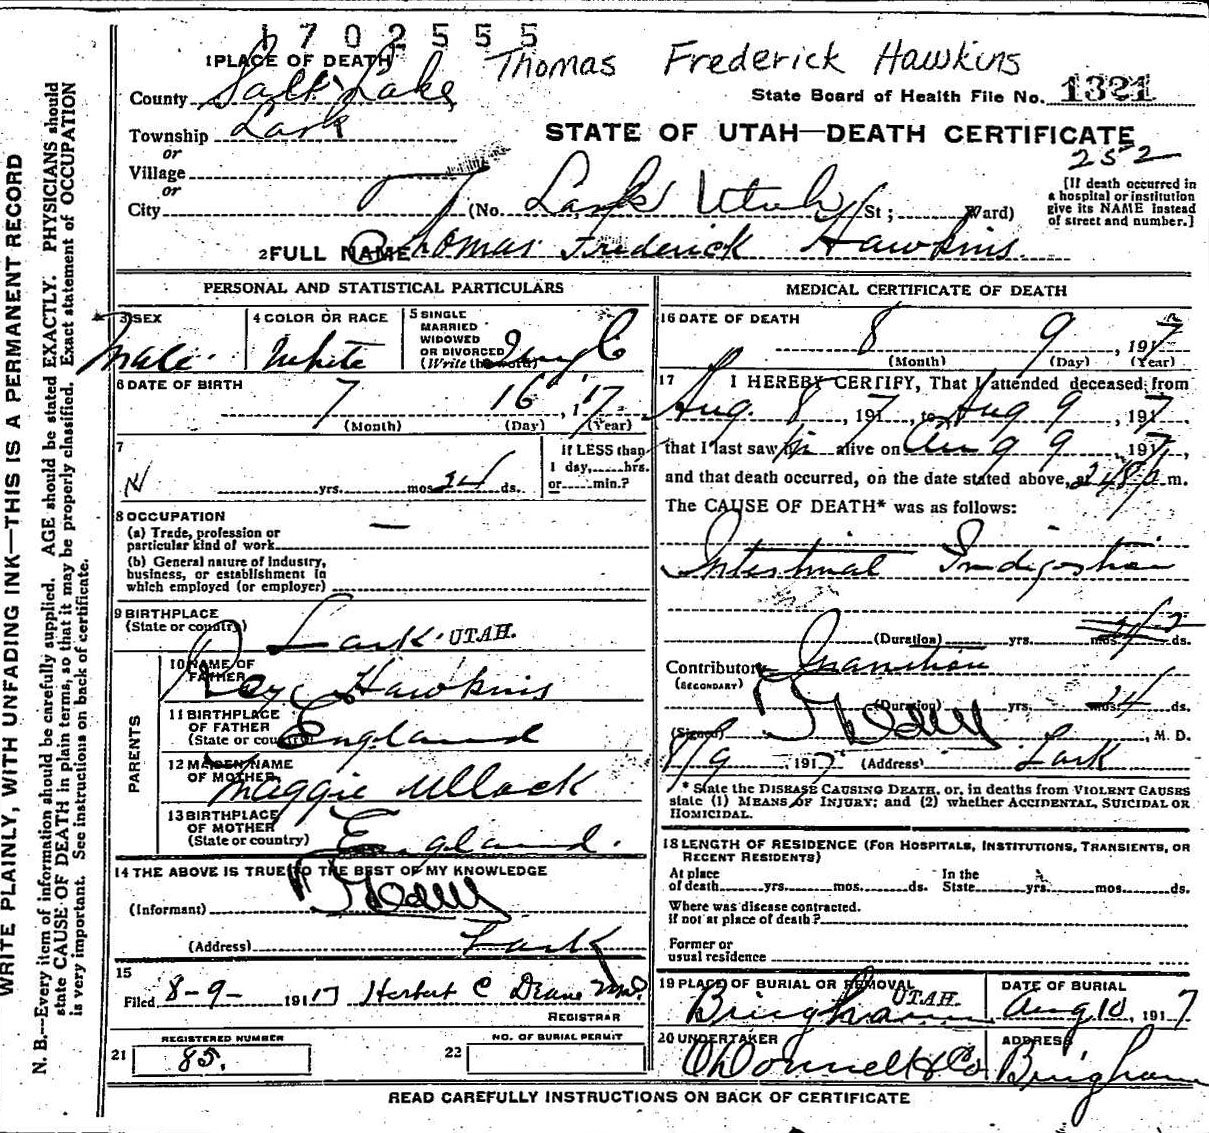 1702555
Thomas Frederick Hawkins
1 PLACE OF DEATH
County Salt Lake
State Board of Health File No. 1321
Township Lark
STATE OF UTAH—DEATH CERTIFICATE
or
252
Village
or
City (No. Lark Utah St; Ward)
[If death occurred in
a hospital or institution
give its NAME instead
of street and number.]
2 FULL NAME Thomas Frederick Hawkins.
PERSONAL AND STATISTICAL PARTICULARS
3 SEX
Male.
4 COLOR OR RACE
White
5 SINGLE
MARRIED
WIDOWED
OR DIVORCED
(Write the word)
6 DATE OF BIRTH
7 16, 1'17
(Month) (Day) (Year)
7
yrs. mos. 24 ds.
If LESS than
1 day, hrs.
or min.?
8 OCCUPATION
(a) Trade, profession or
particular kind of work —
(b) General nature of industry,
business, or establishment in
which employed (or employer)
9 BIRTHPLACE
(State or country) Lark. UTAH.
PARENTS
10 NAME OF
FATHER Roy Hawkins
11 BIRTHPLACE
OF FATHER
(State or country) England
12 MAIDEN NAME
OF MOTHER Maggie Ullock
13 BIRTHPLACE
OF MOTHER
(State or country) England.
14 THE ABOVE IS TRUE TO THE BEST OF MY KNOWLEDGE
(Informant)
(Address) Lark
15
Filed 8-9- 1917 Herbert C Deane M.D.
REGISTRAR
REGISTERED NUMBER
21 85.
NO. OF BURIAL PERMIT
22
MEDICAL CERTIFICATE OF DEATH
16 DATE OF DEATH
8 9, 1917
(Month) (Day) (Year)
17 I HEREBY CERTIFY, That I attended deceased from
Aug. 8, 1917, to Aug 9, 1917,
that I last saw him alive on Aug 9, 1917,
and that death occurred, on the date stated above, at 248 p m.
The CAUSE OF DEATH* was as follows:
Intestinal Indigestion
(Duration) yrs. mos. ds.
Contributory Inanition
(SECONDARY)
(Duration) yrs. mos. ds.
(Signed) , M. D.
8/9, 1917 (Address) Lark
* State the DISEASE CAUSING DEATH, or, in deaths from VIOLENT CAUSES
state (1) MEANS OF INJURY; and (2) whether ACCIDENTAL, SUICIDAL OR
HOMICIDAL.
18 LENGTH OF RESIDENCE (FOR HOSPITALS, INSTITUTIONS, TRANSIENTS, OR
RECENT RESIDENTS)
At place
of death yrs. mos. ds.
In the
State yrs. mos. ds.
Where was disease contracted.
if not at place of death?
Former or
usual residence
19 PLACE OF BURIAL OR REMOVAL
Bingham UTAH.
DATE OF BURIAL
Aug 10, 1917
20 UNDERTAKER
O'Donnell & Co
ADDRESS
Bingham
READ CAREFULLY INSTRUCTIONS ON BACK OF CERTIFICATE
WRITE PLAINLY, WITH UNFADING INK—THIS IS A PERMANENT RECORD
N. B.—Every item of information should be carefully supplied. AGE should be stated EXACTLY. PHYSICIANS should
state CAUSE OF DEATH in plain terms, so that it may be properly classified. Exact statement of OCCUPATION
is very important. See instructions on back of certificate.